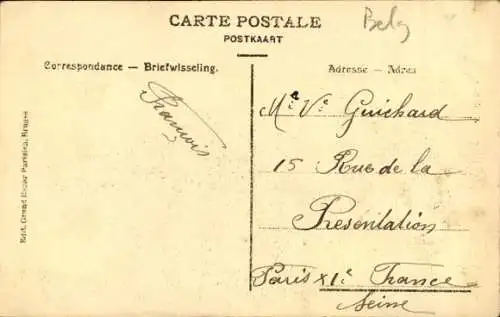 CARTE POSTALE
Belg
POSTKAART
Correspondance — Briefwisseling.
Adresse — Adres
François
Me Ve Guichard
15 Rue de la
Présentation
Paris XIe France
Seine
Edit. Grand Bazar Parisien, Bruges